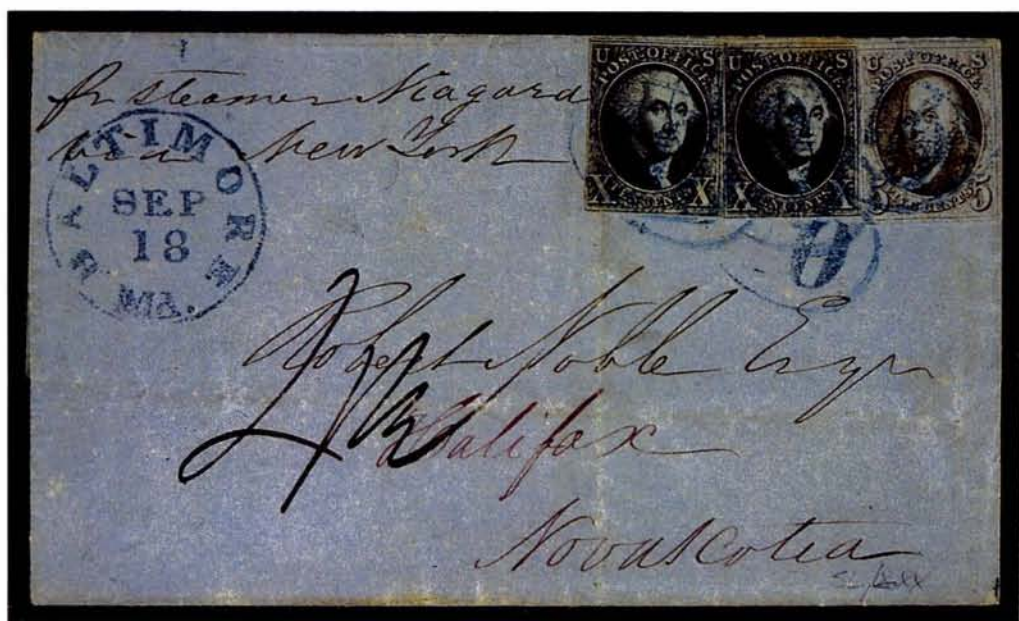 pr steamer Niagara
via New York
BALTIMORE Md.
SEP
18
U S
POST OFFICE
X TEN CENTS X
U S
POST OFFICE
X TEN CENTS X
U S
POST OFFICE
5 FIVE CENTS 5
Robert Noble Esqr
Halifax
Novascotia